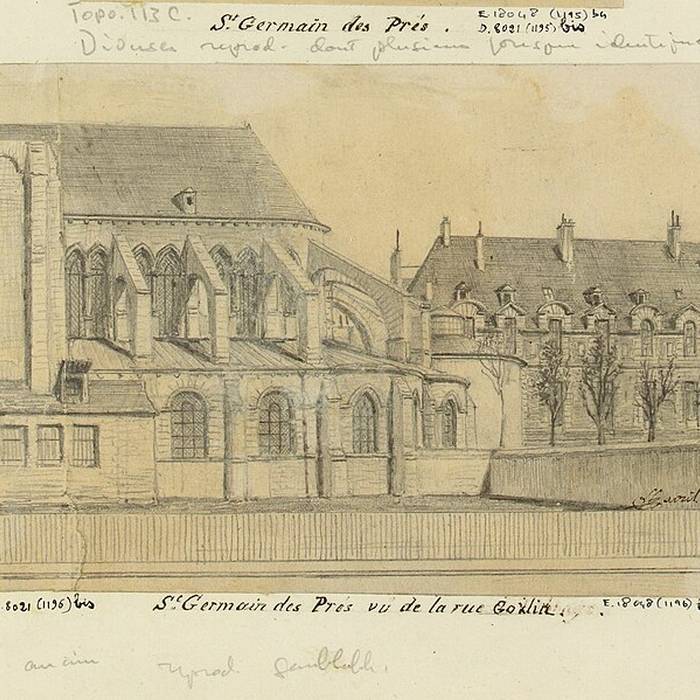 Topo. 113 C.
St Germain des Prés.
E 18048 (1195) bis
D. 8021 (1195) bis
Diverses reprod. dont plusieurs presque identiques
août
.8021 (1196) bis
St Germain des Prés vu de la rue Gozlin.
E. 18048 (1196)
reprod. semblable.